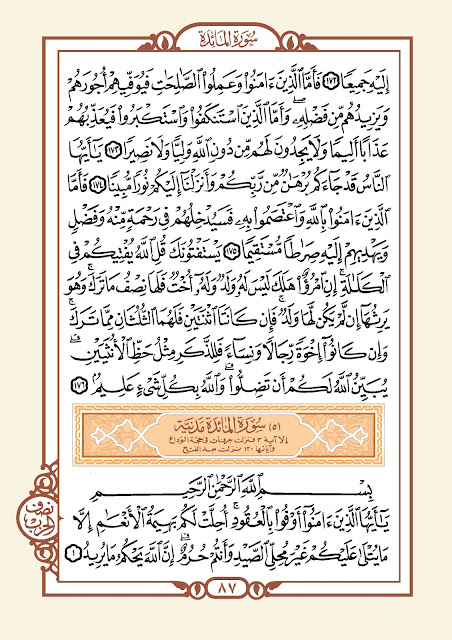 سُورَةُ المَائِدَة
إِلَيْهِ جَمِيعًا ١٧٢ فَأَمَّا ٱلَّذِينَ ءَامَنُوا۟ وَعَمِلُوا۟ ٱلصَّٰلِحَٰتِ فَيُوَفِّيهِمْ أُجُورَهُمْ
وَيَزِيدُهُم مِّن فَضْلِهِۦ ۖ وَأَمَّا ٱلَّذِينَ ٱسْتَنكَفُوا۟ وَٱسْتَكْبَرُوا۟ فَيُعَذِّبُهُمْ
عَذَابًا أَلِيمًا وَلَا يَجِدُونَ لَهُم مِّن دُونِ ٱللَّهِ وَلِيًّا وَلَا نَصِيرًا ١٧٣ يَٰٓأَيُّهَا
ٱلنَّاسُ قَدْ جَآءَكُم بُرْهَٰنٌ مِّن رَّبِّكُمْ وَأَنزَلْنَآ إِلَيْكُمْ نُورًا مُّبِينًا ١٧٤ فَأَمَّا
ٱلَّذِينَ ءَامَنُوا۟ بِٱللَّهِ وَٱعْتَصَمُوا۟ بِهِۦ فَسَيُدْخِلُهُمْ فِى رَحْمَةٍ مِّنْهُ وَفَضْلٍ
وَيَهْدِيهِمْ إِلَيْهِ صِرَٰطًا مُّسْتَقِيمًا ١٧٥ يَسْتَفْتُونَكَ قُلِ ٱللَّهُ يُفْتِيكُمْ فِى
ٱلْكَلَٰلَةِ ۚ إِنِ ٱمْرُؤٌا۟ هَلَكَ لَيْسَ لَهُۥ وَلَدٌ وَلَهُۥٓ أُخْتٌ فَلَهَا نِصْفُ مَا تَرَكَ ۚ وَهُوَ
يَرِثُهَآ إِن لَّمْ يَكُن لَّهَا وَلَدٌ ۚ فَإِن كَانَتَا ٱثْنَتَيْنِ فَلَهُمَا ٱلثُّلُثَانِ مِمَّا تَرَكَ ۚ
وَإِن كَانُوٓا۟ إِخْوَةً رِّجَالًا وَنِسَآءً فَلِلذَّكَرِ مِثْلُ حَظِّ ٱلْأُنثَيَيْنِ ۗ
يُبَيِّنُ ٱللَّهُ لَكُمْ أَن تَضِلُّوا۟ ۗ وَٱللَّهُ بِكُلِّ شَىْءٍ عَلِيمٌۢ ١٧٦
(٥) سُورَةُ المَائِدَةِ مَدَنِيَّة
إلا آية ٣ فنزلت بعرفات في حجة الوداع
وآياتها ١٢٠ نزلت بعد الفتح
بِسْمِ ٱللَّهِ ٱلرَّحْمَٰنِ ٱلرَّحِيمِ
يَٰٓأَيُّهَا ٱلَّذِينَ ءَامَنُوٓا۟ أَوْفُوا۟ بِٱلْعُقُودِ ۚ أُحِلَّتْ لَكُم بَهِيمَةُ ٱلْأَنْعَٰمِ إِلَّا
مَا يُتْلَىٰ عَلَيْكُمْ غَيْرَ مُحِلِّى ٱلصَّيْدِ وَأَنتُمْ حُرُمٌ ۗ إِنَّ ٱللَّهَ يَحْكُمُ مَا يُرِيدُ ١
نصف
الحزب
٨٧